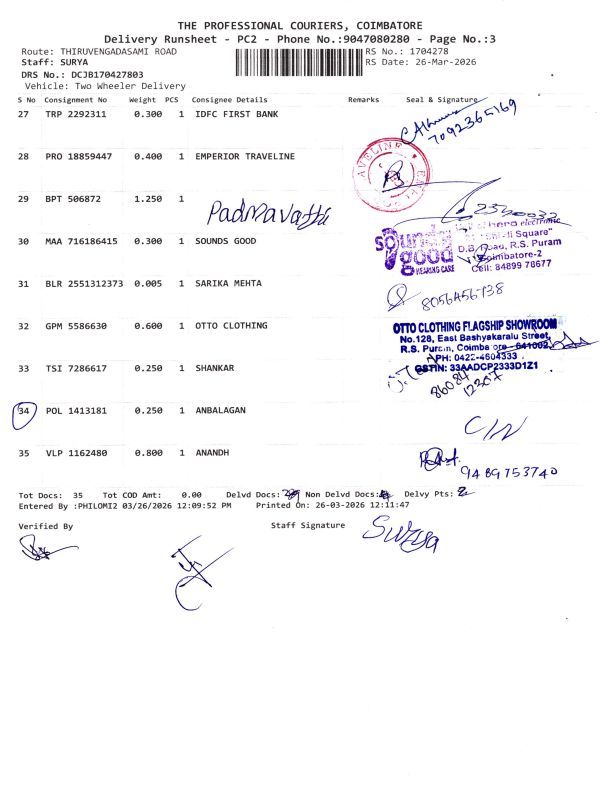 THE PROFESSIONAL COURIERS, COIMBATORE
Delivery Runsheet - PC2 - Phone No.:9047080280 - Page No.:3
Route: THIRUVENGADASAMI ROAD
RS No.: 1704278
Staff: SURYA
RS Date: 26-Mar-2026
DRS No.: DCJB170427803
Vehicle: Two Wheeler Delivery
S No Consignment No Weight PCS Consignee Details Remarks Seal & Signature
27 TRP 2292311 0.300 1 IDFC FIRST BANK
7092365169
28 PRO 18859447 0.400 1 EMPERIOR TRAVELINE
29 BPT 506872 1.250 1
Padmavathi
30 MAA 716186415 0.300 1 SOUNDS GOOD
sounds good
HEARING CARE
electronic
Square"
D.B. Road, R.S. Puram
Coimbatore-2
Cell: 84899 78677
31 BLR 2551312373 0.005 1 SARIKA MEHTA
8056456738
32 GPM 5586630 0.600 1 OTTO CLOTHING
OTTO CLOTHING FLAGSHIP SHOWROOM
No.128, East Bashyakaralu Street,
R.S. Puram, Coimbatore - 641002
PH: 0422-4604333
GSTIN: 33AADCP2333D1Z1
33 TSI 7286617 0.250 1 SHANKAR
86084
12307
34 POL 1413181 0.250 1 ANBALAGAN
35 VLP 1162480 0.800 1 ANANDH
9489753740
Tot Docs: 35 Tot COD Amt: 0.00 Delvd Docs: Non Delvd Docs: Delvy Pts:
Entered By :PHILOMI2 03/26/2026 12:09:52 PM Printed On: 26-03-2026 12:11:47
Verified By Staff Signature
Surya